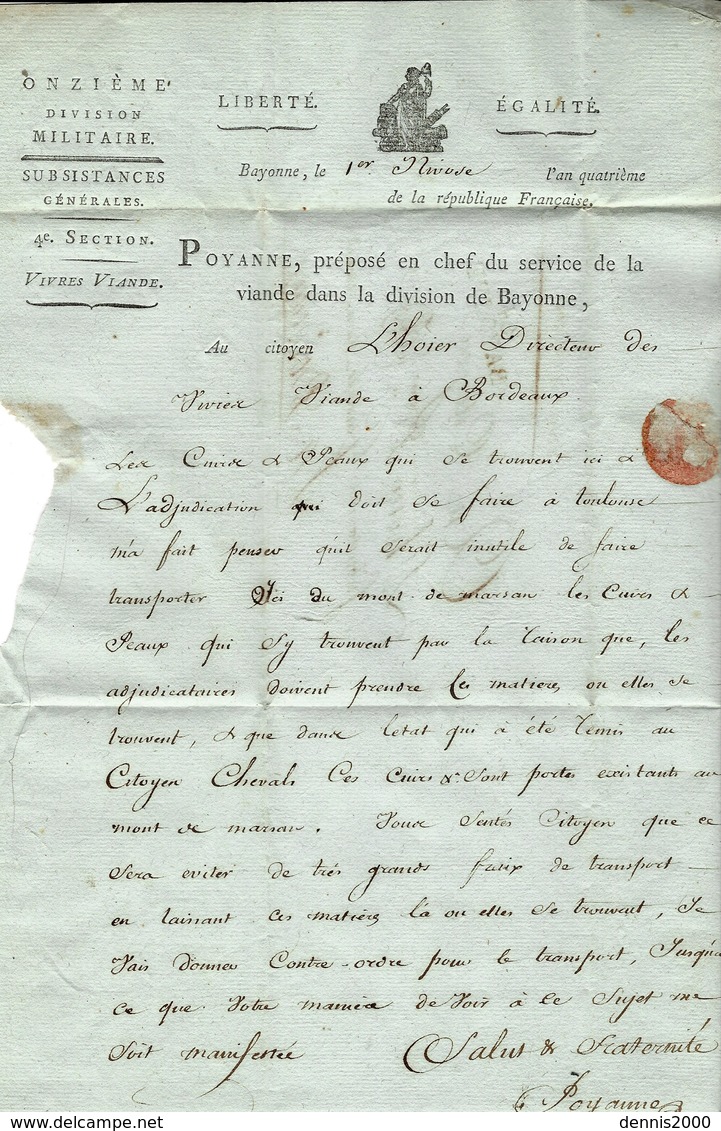 ONZIÈME
DIVISION
MILITAIRE.
SUBSISTANCES
GÉNÉRALES.
4e. SECTION.
VIVRES VIANDE.
LIBERTÉ.
ÉGALITÉ.
Bayonne, le 1er. Nivose l'an quatrième
de la république Française.
POYANNE, préposé en chef du service de la
viande dans la division de Bayonne,
Au citoyen L'hoier Directeur des
Vivres Viande à Bordeaux.
Les Cuirs & Peaux qui se trouvent ici &
L'adjudication qui doit se faire à toulouse
m'a fait penser qu'il serait inutile de faire
transporter Ici du mont-de-marsan les Cuirs &
Peaux qui s'y trouvent par la raison que, les
adjudicataires doivent prendre les matieres ou elles se
trouvent, & que dans l'etat qui à été remis au
Citoyen Chevals Ces cuirs &c. Sont portes existants au
mont de marsan. Vous Sentés Citoyen que ce
sera eviter de trés grands fraix de transport
en laissant ces matières là ou elles se trouvent, Je
Vais donner Contre-ordre pour le transport, Jusqu'a
ce que Votre maniere de Voir à ce Sujet me
soit manifestée Salut & Fraternité
Poyanne
dennis2000